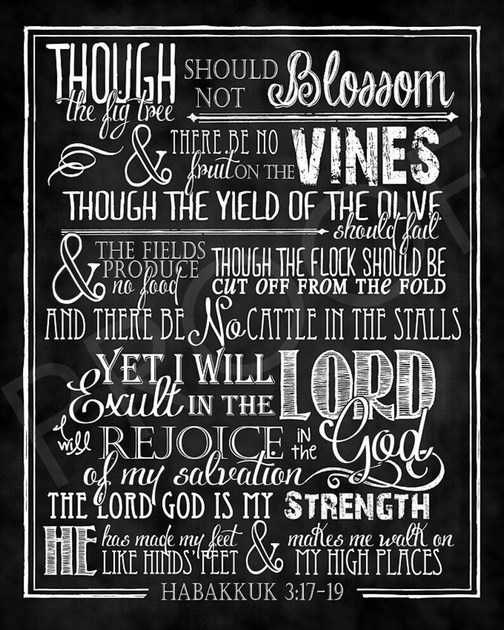 THOUGH the fig tree SHOULD NOT Blossom
& THERE BE NO fruit ON THE VINES
THOUGH THE YIELD OF THE OLIVE
should fail
& THE FIELDS PRODUCE no food THOUGH THE FLOCK SHOULD BE CUT OFF FROM THE FOLD
AND THERE BE No CATTLE IN THE STALLS
YET I WILL Exult IN THE LORD
I will REJOICE in the God
of my salvation
THE LORD GOD IS MY STRENGTH
HE has made my feet LIKE HINDS' FEET & makes me walk on MY HIGH PLACES
HABAKKUK 3:17-19
PROOF